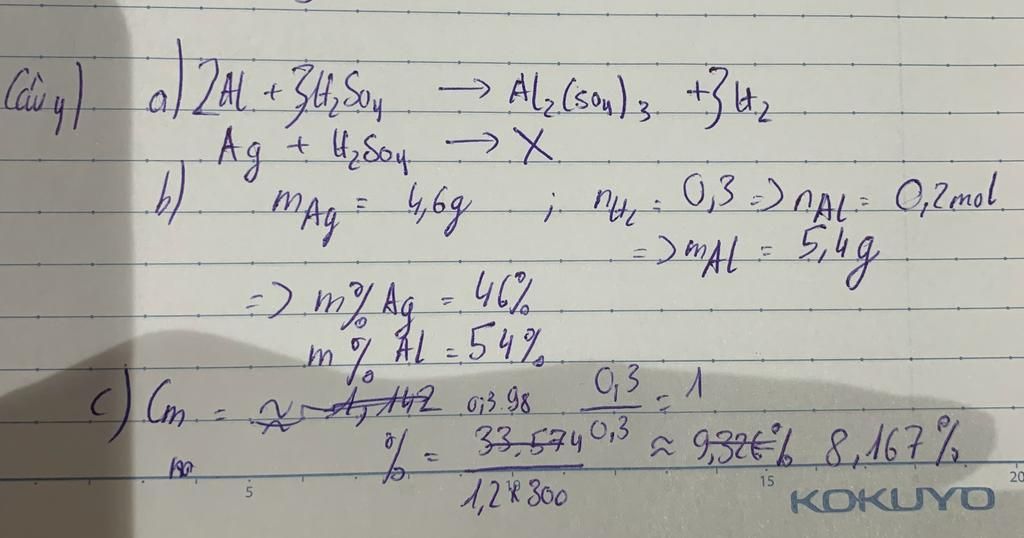 Câu 4) a) 2Al + 3H₂SO₄ → Al₂(SO₄)₃ + 3H₂
Ag + H₂SO₄ → X
b) mAg = 4,6g ; nH₂ = 0,3 => nAl = 0,2mol
=> mAl = 5,4g
=> m% Ag = 46%
m% Al = 54%
c) Cm = ≈ 1,142 0,3.98 0,3/0,3 = 1
% = 33.574/1,2*300 ≈ 9,326% 8,167%
5 15 20
KOKUYO